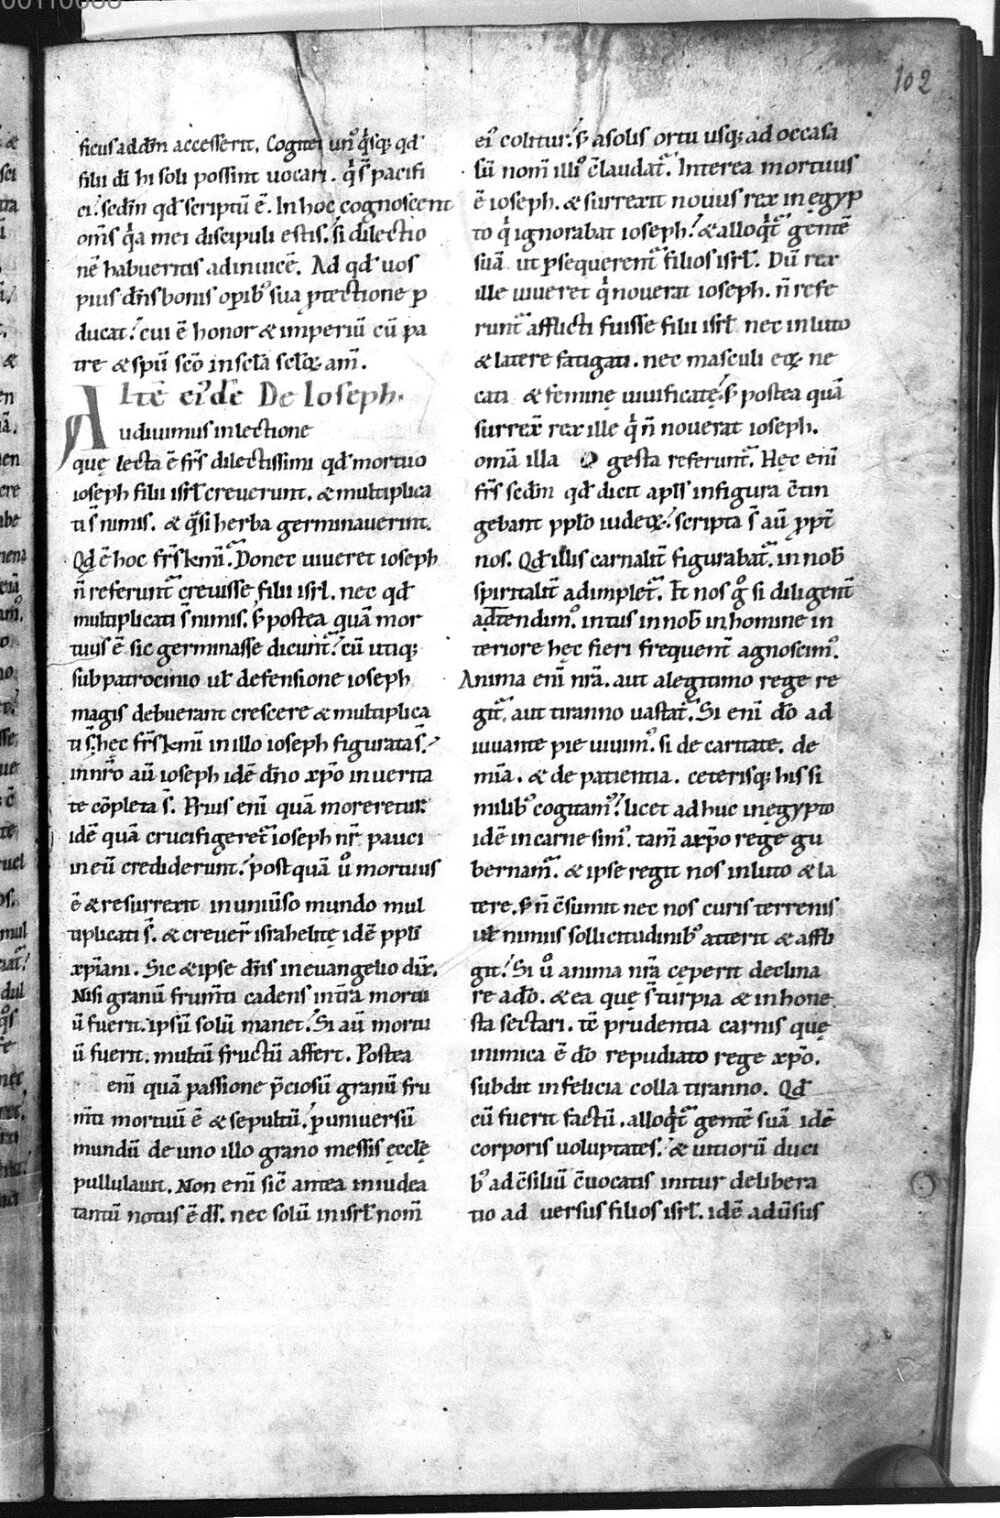 00110688
102
ficus addm̄ accesserit. Cogitet un᷒ qͥsq; qđ
filii dī hi soli possint uocari. qͥ s̄ pacifi
ci. sedm̄ qđ scriptū ē. In hoc cognoscent
om̄s qͥa mei discipuli estis. si dilectio
nē habueritis adinuicē. Ad qđ uos
pius dn̄s bonis op̄ib᷒ sua ꝓtectione ꝑ
ducat. cui ē honor & imperiū cū pa
tre & spū scō in sc̄la sc̄loꝝ am̄.
Itē ei᷒dē De Ioseph.
Audiuimus in lectione
quę lecta ē frs̄ dilectissimi qđ mortuo
ioseph filii isrł creuerunt. & multiplica
ti s̄ nimis. & qͣsi herba germinauerunt.
Qđ ē hoc frs̄ km̄i. Donec uiueret ioseph
n̄ referunt᷒ creuisse filii isrł. nec qđ
multiplicati s̄ nimis. s̄ postea quā mor
tuus ē sic germinasse dicunt᷒. cū utiq;
sub patrocinio uł defensione ioseph
magis debuerant crescere & multiplica
ti s̄. hęc frs̄ km̄i in illo ioseph figurata s̄.
in nr̄o aū ioseph idē dn̄o xp̄o in uerita
te cōpleta s̄. Prius eni̅ quā moreretur
idē quā crucifigeret᷒ ioseph nr̄ pauci
in eū crediderunt. postquā ů mortuus
ē & resurrexit in uniūso mundo mul
tiplicati s̄. & creuer̄ israhelitę idē ppłi
xp̄iani. Sic & ipse dn̄s in euangelio dix̄.
Nisi granū frum̄ti cadens in t̄ra mortu
ū fuerit. ipsū solū manet. Si aū mortu
ū fuerit. multū fructū affert. Postea
eni̅ quā passione p̄ciosū granū fru
m̄ti mortuū ē & sepultū. ꝑ uniuersū
mundū de uno illo grano messis ęcclę
pullulauit. Non eni̅ sic̄ antea in iudea
tantū notus ē ds̄. nec solū in isrł nom̄
ei᷒ colitur. s̄ a solis ortu usq; ad occasū
sū nom̄ illi᷒ c̄laudat᷒. Interea mortuus
ē ioseph. & surrexit nouus rex in ęgyp
to qͥ ignorabat ioseph. & alloqͥt᷒ gentē
suā ut ꝑsequerent᷒ filios isrł. Dū rex
ille uiueret qͥ nouerat ioseph. n̄ refe
runt᷒ afflicti fuisse filii isrł nec in luto
& latere fatigati. nec masculi eoꝝ ne
cati & feminę uiuificatę. s̄ postea quā
surrex̄ rex ille qͥ n̄ nouerat ioseph.
omā illa gesta referunt᷒. Hęc eni̅
frs̄ sedm̄ qđ dicit apłs in figura c̄tin
gebant pplo iudeoꝝ. scripta s̄ aū ꝓpt̄
nos. Qđ illis carnalit̄ figurabat᷒. in nob̄
spiritalit̄ adimplet᷒. Et nos g̊ si diligent̄
adtendim᷒. intus in nob̄ in homine in
teriore hęc fieri frequent̄ agnoscim᷒.
Anima eni̅ nr̄a. aut a legitimo rege re
git᷒. aut a tiranno uastat᷒. Si eni̅ dō ad
iuuante pie uiuim᷒. si de caritate. de
mi̅a. & de patientia. ceterisq; his si
milib᷒ cogitam᷒. licet adhuc in ęgypto
idē in carne sim᷒. tam̄ a xp̄o rege gu
bernam᷒. & ipse regit nos in luto & la
tere. s̄ n̄ c̄sumit nec nos curis terrenis
uł nimiis sollicitudinib᷒ atterit & affli
git. Si ů anima nr̄a cęperit declina
re a dō. & ea quę s̄ turpia & inhone
sta sectari. tc̄ prudentia carnis quę
inimica ē dō repudiato rege xp̄o.
subdit infelicia colla tiranno. Qđ
cū fuerit factū. alloqͥt᷒ gentē suā idē
corporis uoluptates. & uitiorū duci
b᷒ ad c̄siliū c̄uocatis initur delibera
tio aduersus filios isrł. idē adūsus